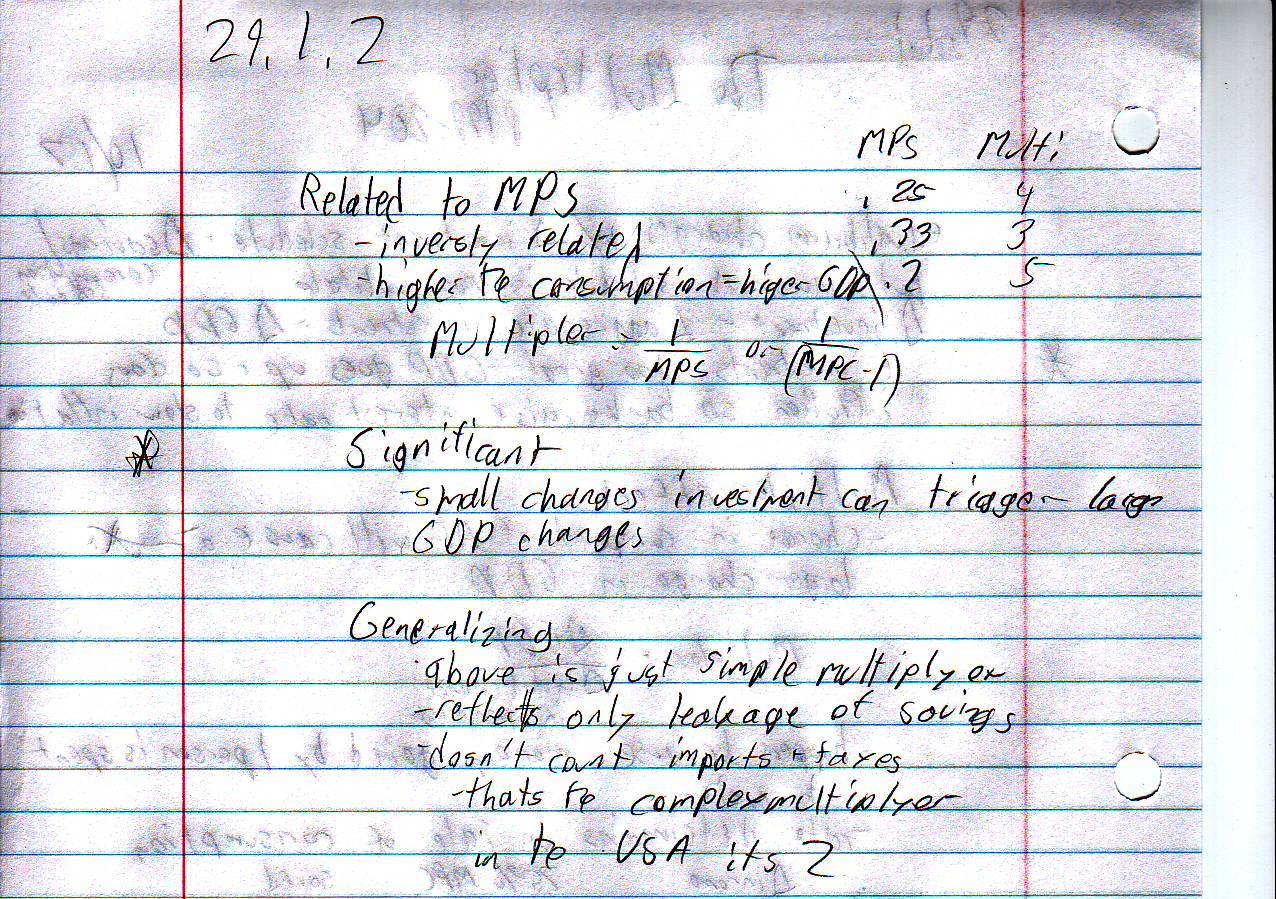 29.1.2
MPs Multi
Related to MPs .25 4
-inversly related .33 3
-higher te consumption=higer GDP .2 5
Multipler = 1/MPS or 1/(MPC-1)
Significant
-small changes investment can triager large
GDP changes
Generalizing
-above is just simple multiply er
-reflects only leakage of savings
-dosn't count imports + taxes
-thats te complex multiplyer
in te USA its 2